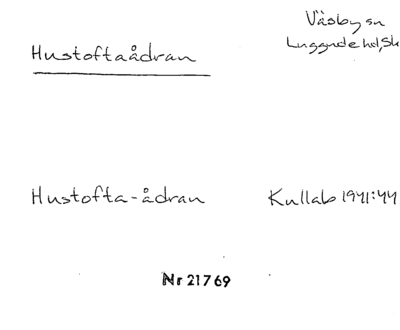 Väsby sn
Luggude hd, Sk
Hustoftaådran
Hustofta-ådran Kullab 1941:44
Nr 21769